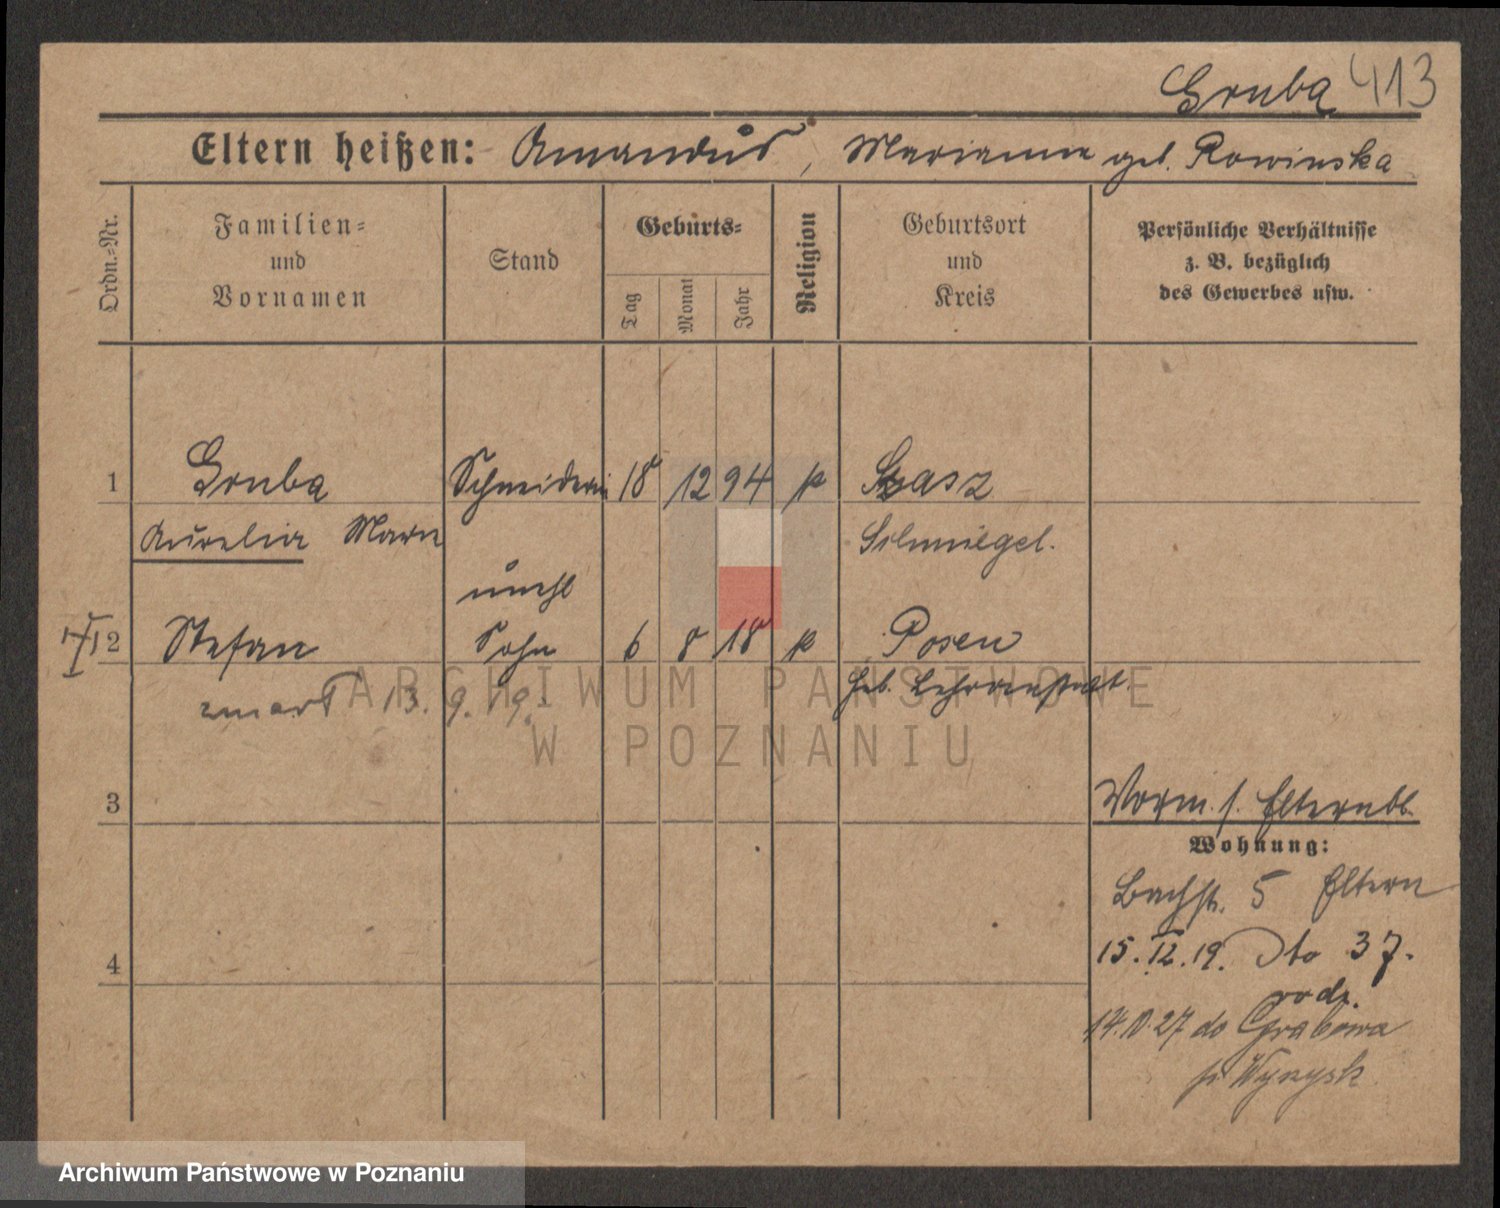 Gruba 413
Eltern heißen: Amandus, Marianna geb. Rowinska
Ordn.-Nr.
Familien- und Vornamen
Stand
Geburts-
Tag
Monat
Jahr
Religion
Geburtsort und Kreis
Persönliche Verhältnisse z. B. bezüglich des Gewerbes usw.
1 Gruba Schneiderin 18 12 94 k
Aurelia Maria Schmiegel.
unehl
2 Stefan Sohn 6 8 18 k Posen
zmarł 13. 9. 19. Heb. Lehranstalt
ARCHIWUM PAŃSTWOWE
W POZNANIU
3
Vorm. s. Elternbl.
Wohnung:
Bachstr. 5 Eltern
4
15. 12. 19. Dto 37.
rodz.
14. 27 do Grabowa
p. Wyrzysk
Archiwum Państwowe w Poznaniu